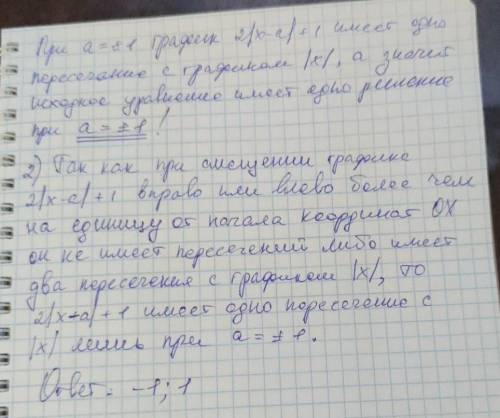 При a = ±1 График 2|x-a|+1 имеет одно
пересечение с графиком |x|, а значит
исходное уравнение имеет одно решение
при a = ±1!
2) Так как при смещении графика
2|x-a|+1 вправо или влево более чем
на единицу от начала координат OX
он не имеет пересечений либо имеет
два пересечения с графиком |x|, то
2|x-a|+1 имеет одно пересечение с
|x| лишь при a = ±1.
Ответ: -1; 1